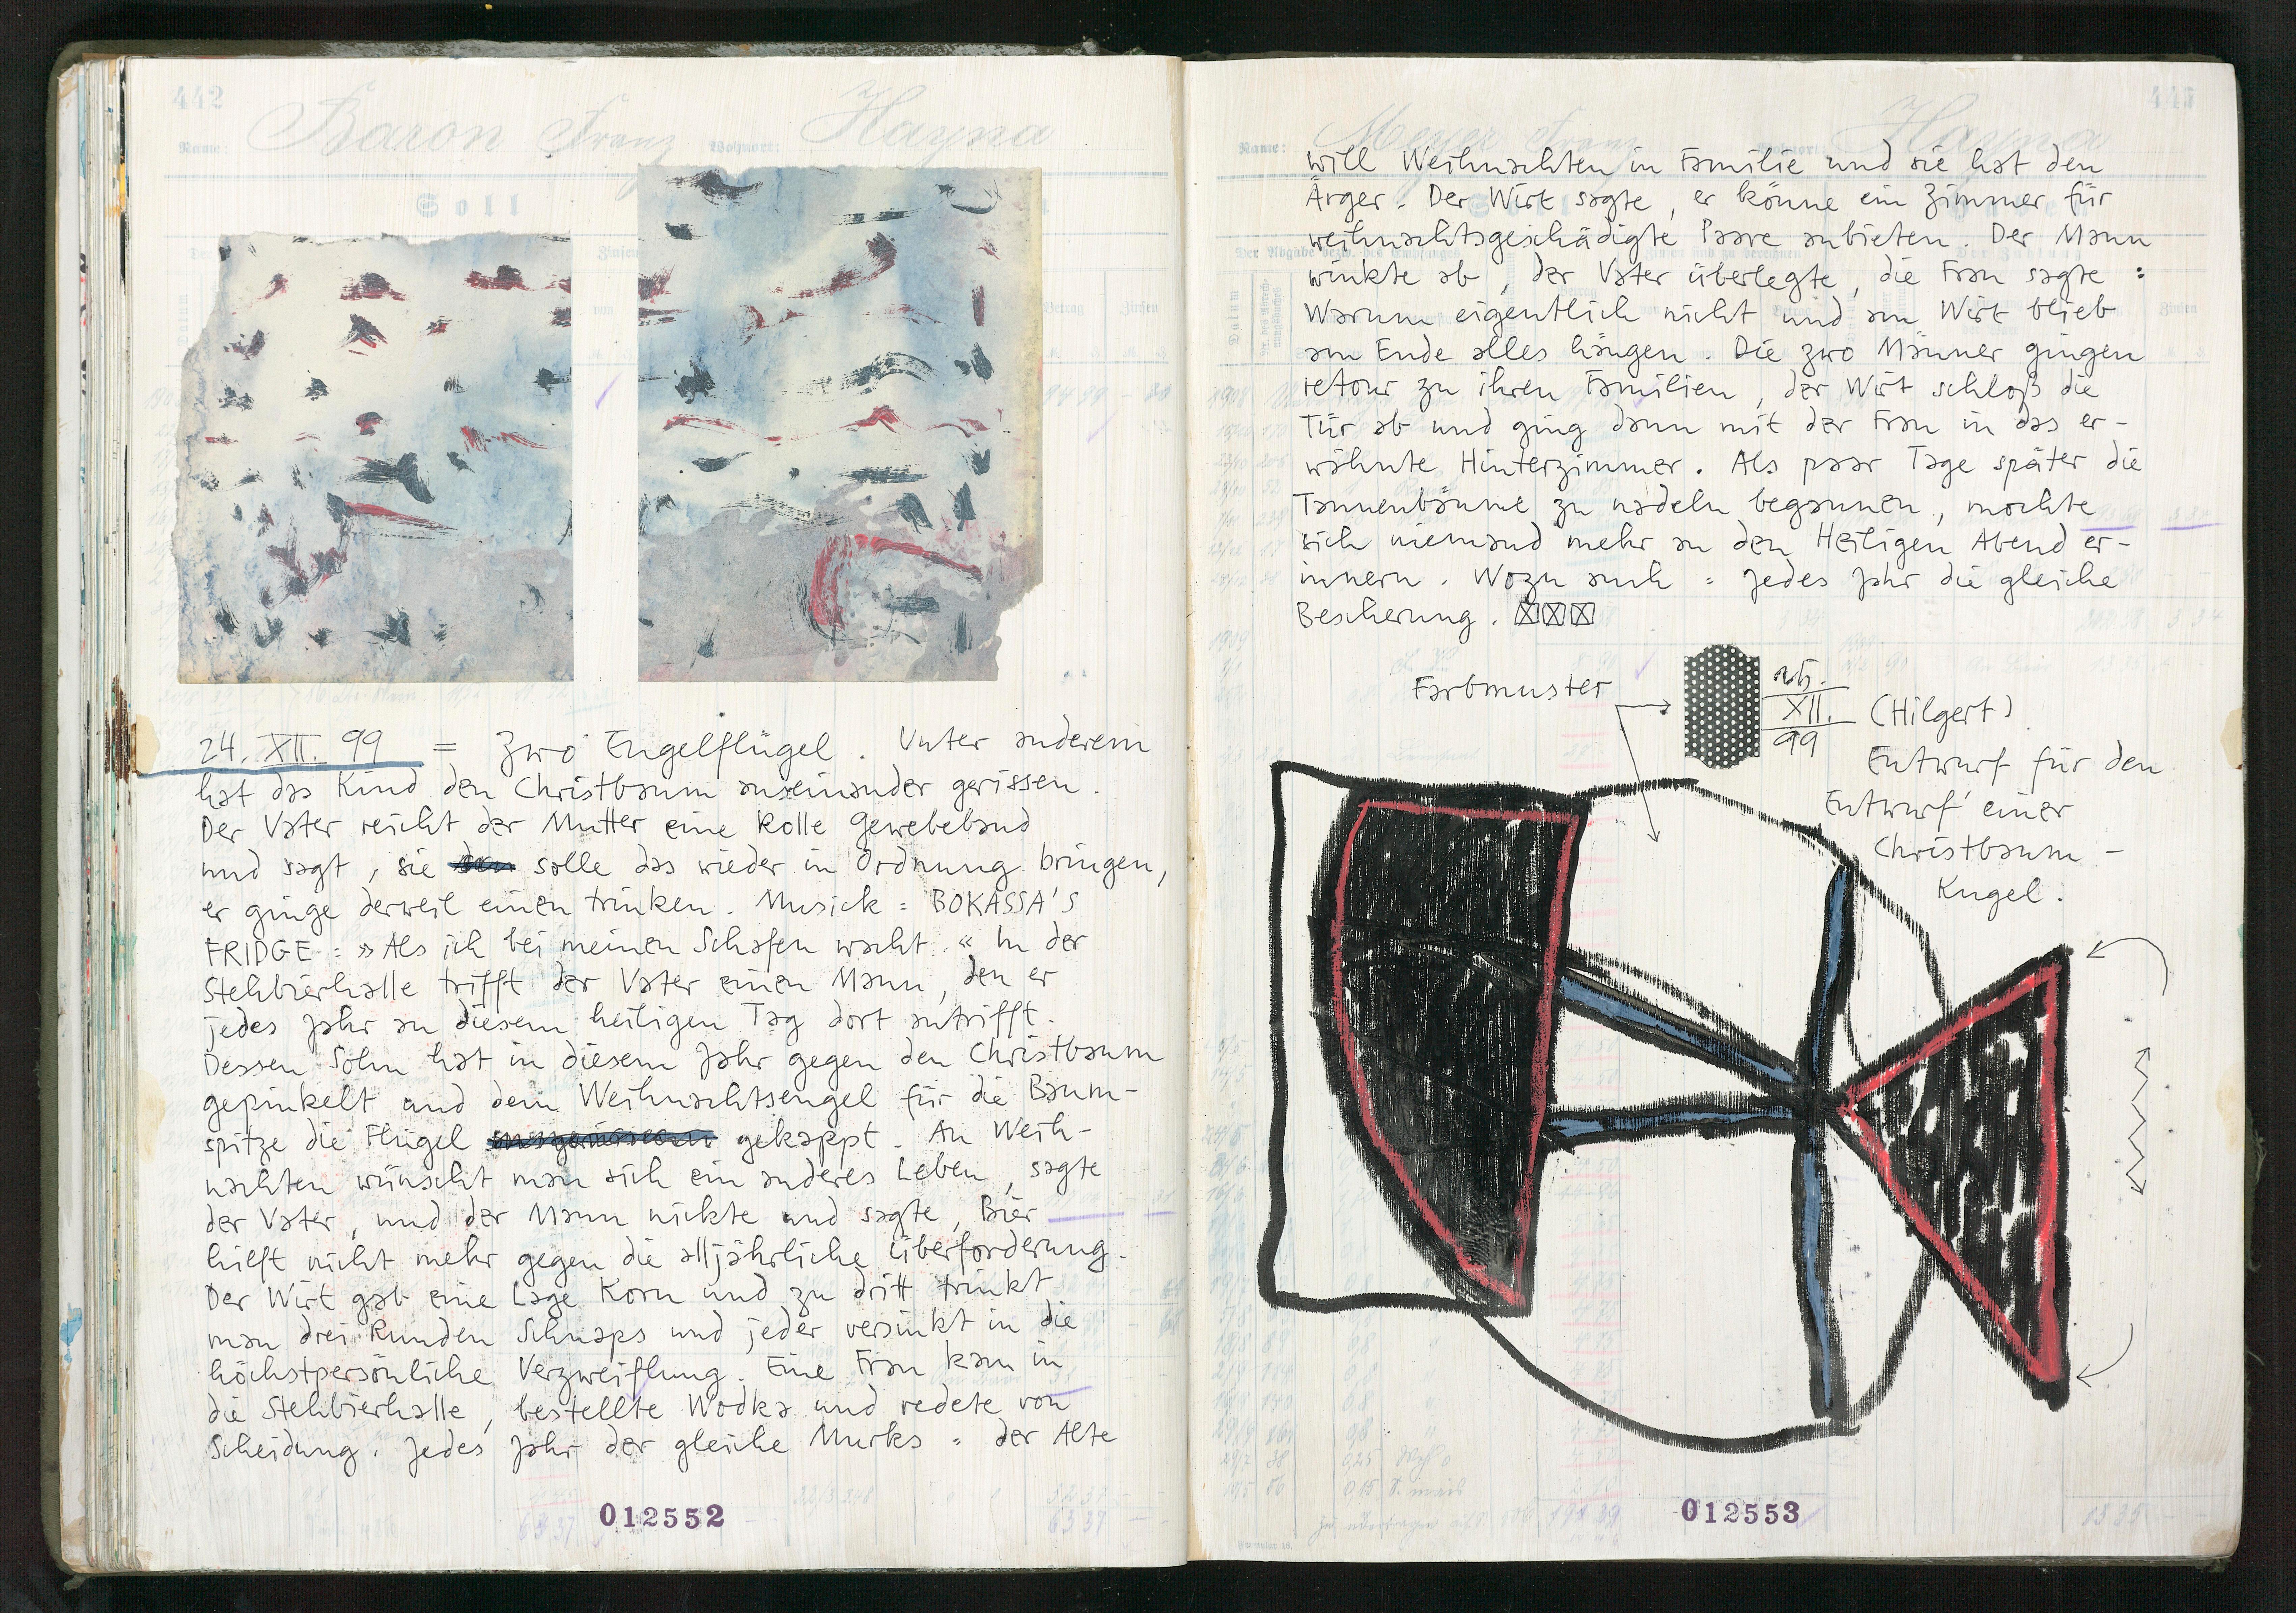 442
Name: Baron Franz Wohnort: Hayna
Soll
24. XII. 99 = zwo Engelflügel. Unter anderem
hat das Kind den Christbaum auseinander gerissen.
Der Vater reicht der Mutter eine Rolle Gewebeband
und sagt, sie solle das wieder in Ordnung bringen,
er ginge derweil einen trinken. Musick = BOKASSA'S
FRIDGE = »Als ich bei meinen Schafen wacht.« In der
Stehbierhalle trifft der Vater einen Mann, den er
jedes Jahr an diesem heiligen Tag dort antrifft.
Dessen Sohn hat in diesem Jahr gegen den Christbaum
gepinkelt und dem Weihnachtsengel für die Baum-
spitze die Flügel gekappt. An Weih-
nachten wünscht man sich ein anderes Leben, sagte
der Vater, und der Mann nickte und sagte, Bier
hilft nicht mehr gegen die alljährliche Überforderung.
Der Wirt gab eine Lage Korn und zu dritt trinkt
man drei Runden Schnaps und jeder versinkt in die
höchstpersönliche Verzweiflung. Eine Frau kam in
die Stehbierhalle, bestellte Wodka und redete von
Scheidung. Jedes Jahr der gleiche Murks = der Alte
012552
443
Name: Meyer Franz Hayna
will Weihnachten in Familie und sie hat den
Ärger. Der Wirt sagte, er könne ein Zimmer für
weihnachtsgeschädigte Paare anbieten. Der Mann
winkte ab, der Vater überlegte, die Frau sagte =
Warum eigentlich nicht und am Wirt blieb
am Ende alles hängen. Die zwo Männer gingen
retour zu ihren Familien, der Wirt schloß die
Tür ab und ging dann mit der Frau in das er-
wähnte Hinterzimmer. Als paar Tage später die
Tannenbäume zu nadeln begannen, mochte
sich niemand mehr an den Heiligen Abend er-
innern. Wozu auch = jedes Jahr die gleiche
Bescherung.
Farbmuster
25.
XII.
99
(Hilgert)
Entwurf für den
Entwurf einer
Christbaum-
Kugel.
012553